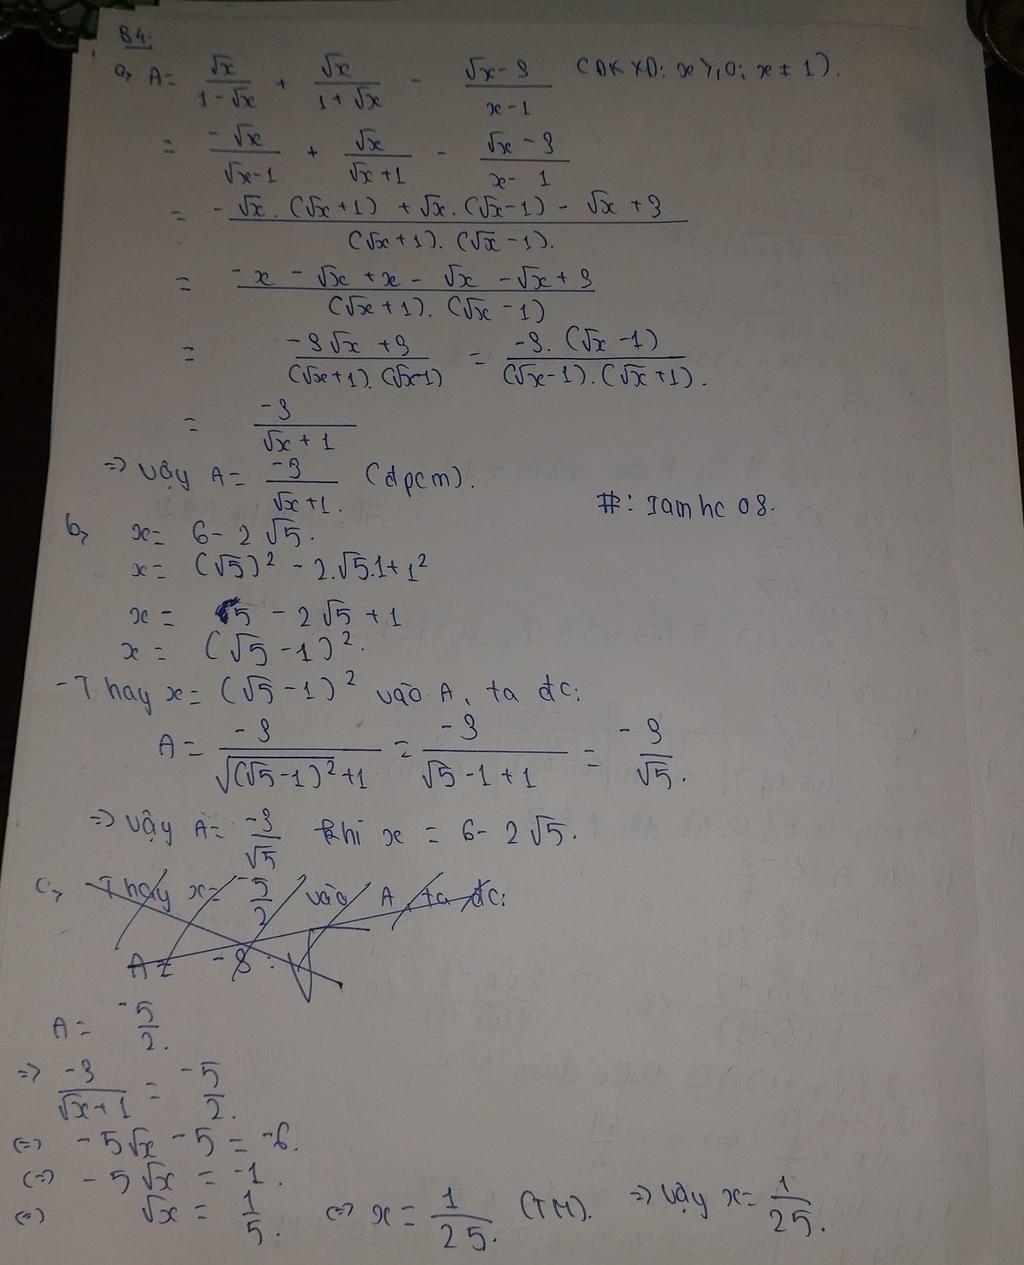 B4:
a, A = √x/(1-√x) + √x/(1+√x) - (√x-3)/(x-1) (ĐKXĐ: x ≥ 0; x ≠ 1).
= -√x/(√x-1) + √x/(√x+1) - (√x-3)/(x-1)
= (-√x.(√x+1) + √x.(√x-1) - √x + 3)/((√x+1).(√x-1)).
= (-x - √x + x - √x - √x + 3)/((√x+1).(√x-1))
= (-3√x + 3)/((√x+1).(√x-1)) = (-3.(√x-1))/((√x-1).(√x+1)).
= -3/(√x+1)
=> Vậy A = -3/(√x+1). (đpcm).
#: Iamhc08.
b, x = 6 - 2√5.
x = (√5)² - 2.√5.1 + 1²
x = 5 - 2√5 + 1
x = (√5 - 1)².
- Thay x = (√5 - 1)² vào A, ta đc:
A = -3/(√(√5-1)² + 1) = -3/(√5 - 1 + 1) = -3/√5.
=> Vậy A = -3/√5 khi x = 6 - 2√5.
c, Thay x = -5/2 vào A, ta đc:
A = -3 : √
A = -5/2.
=> -3/(√x+1) = -5/2.
<=> -5√x - 5 = -6.
<=> -5√x = -1.
<=> √x = 1/5. <=> x = 1/25. (TM). => Vậy x = 1/25.